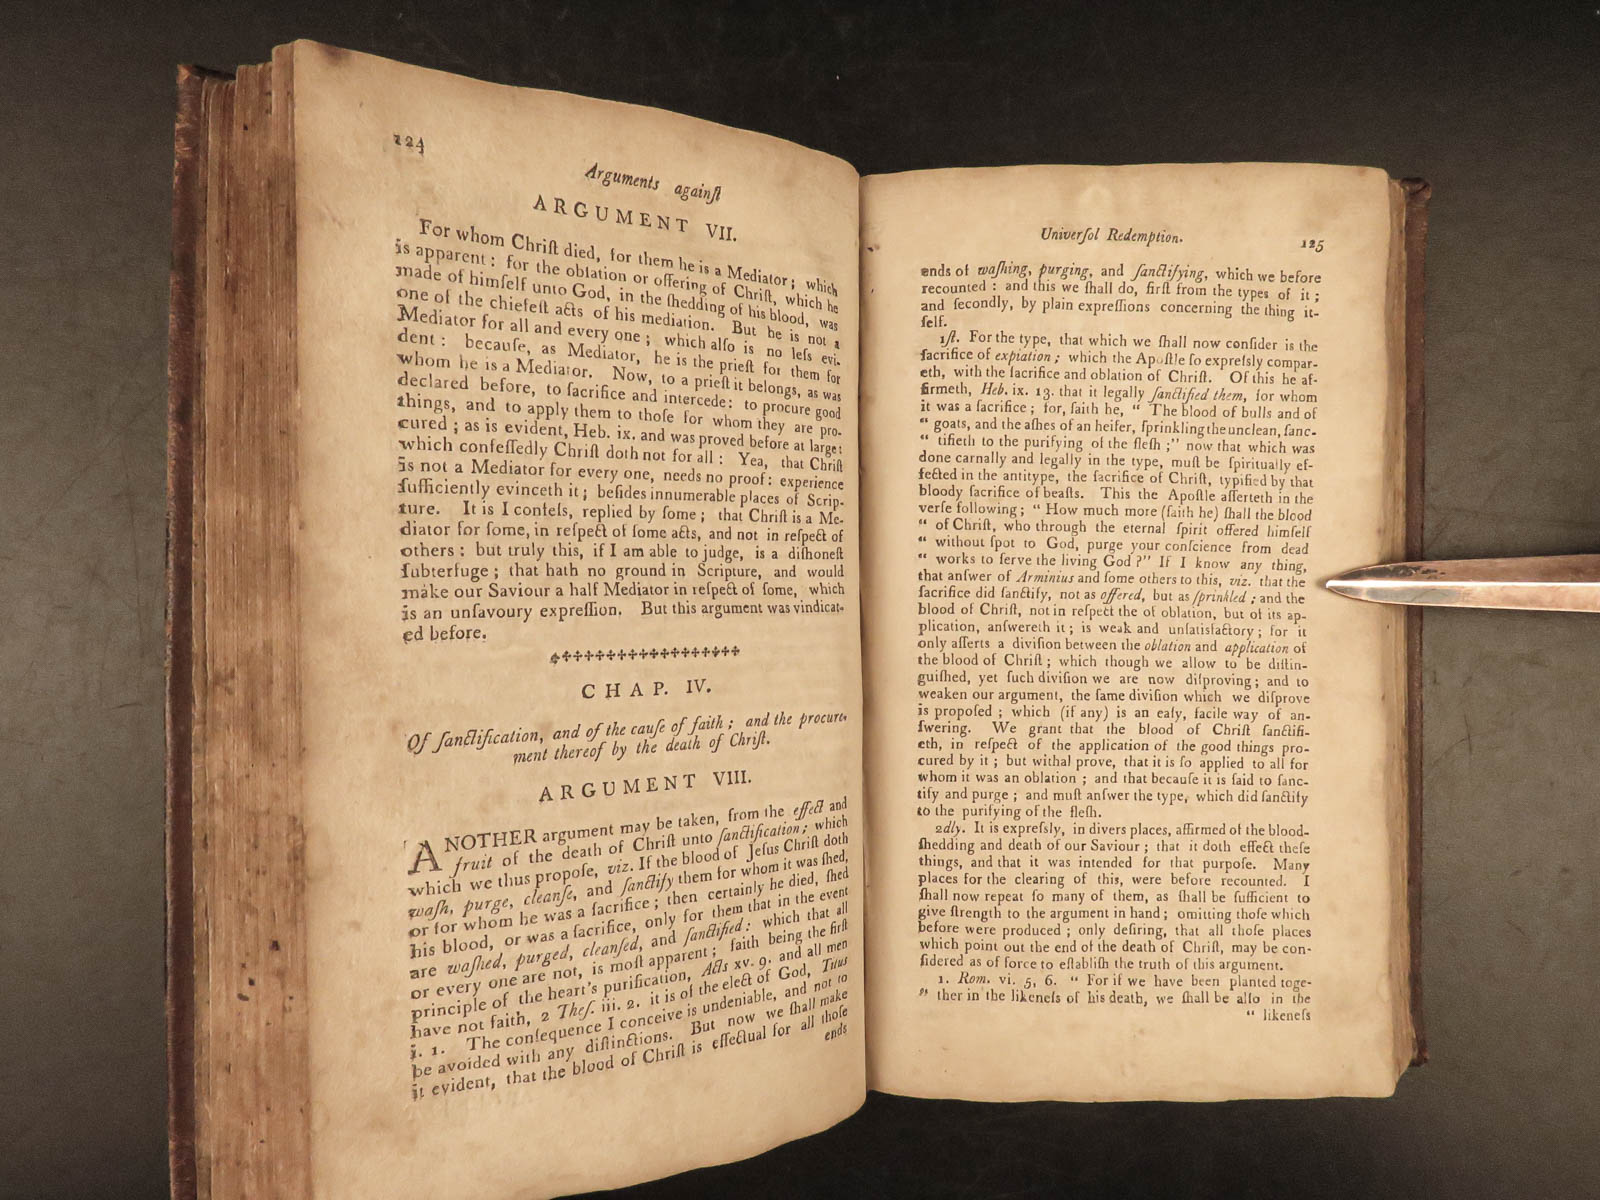 124
Arguments againſt
ARGUMENT VII.
For whom Chriſt died, for them he is a Mediator; which
is apparent: for the oblation or offering of Chriſt, which he
made of himſelf unto God, in the ſhedding of his blood, was
one of the chiefeſt acts of his mediation. But he is not a
Mediator for all and every one; which alſo is no leſs evi-
dent: becauſe, as Mediator, he is the prieſt for them for
whom he is a Mediator. Now, to a prieſt it belongs, as was
declared before, to ſacrifice and intercede: to procure good
things, and to apply them to thoſe for whom they are pro-
cured; as is evident, Heb. ix. and was proved before at large:
which confeſſedly Chriſt doth not for all: Yea, that Chriſt
is not a Mediator for every one, needs no proof: experience
ſufficiently evinceth it; beſides innumerable places of Scrip-
ture. It is I confeſs, replied by ſome; that Chriſt is a Me-
diator for ſome, in reſpect of ſome acts, and not in reſpect of
others: but truly this, if I am able to judge, is a diſhoneſt
ſubterfuge; that hath no ground in Scripture, and would
make our Saviour a half Mediator in reſpect of ſome, which
is an unſavoury expreſſion. But this argument was vindicat-
ed before.
CHAP. IV.
Of ſanctification, and of the cauſe of faith; and the procure-
ment thereof by the death of Chriſt.
ARGUMENT VIII.
ANOTHER argument may be taken, from the effect and
fruit of the death of Chriſt unto ſanctification; which
which we thus propoſe, viz. If the blood of Jeſus Chriſt doth
waſh, purge, cleanſe, and ſanctify them for whom it was ſhed,
or for whom he was a ſacrifice; then certainly he died, ſhed
his blood, or was a ſacrifice, only for them that in the event
are waſhed, purged, cleanſed, and ſanctified: which that all
or every one are not, is moſt apparent; faith being the firſt
principle of the heart's purification, Acts xv. 9. and all men
have not faith, 2 Theſ. iii. 2. it is of the elect of God, Titus
i. 1. The conſequence I conceive is undeniable, and not to
be avoided with any diſtinctions. But now we ſhall make
it evident, that the blood of Chriſt is effectual for all thoſe
ends
Univerſol Redemption.
125
ends of waſhing, purging, and ſanctifying, which we before
recounted: and this we ſhall do, firſt from the types of it;
and ſecondly, by plain expreſſions concerning the thing it-
ſelf.
1ſt. For the type, that which we ſhall now conſider is the
ſacrifice of expiation; which the Apoſtle ſo expreſsly compar-
eth, with the ſacrifice and oblation of Chriſt. Of this he af-
firmeth, Heb. ix. 13. that it legally ſanctified them, for whom
it was a ſacrifice; for, ſaith he, “ The blood of bulls and of
“ goats, and the aſhes of an heifer, ſprinkling the unclean, ſanc-
“ tifieth to the purifying of the fleſh;” now that which was
done carnally and legally in the type, muſt be ſpiritually ef-
fected in the antitype, the ſacrifice of Chriſt, typified by that
bloody ſacrifice of beaſts. This the Apoſtle aſſerteth in the
verſe following; “ How much more (ſaith he) ſhall the blood
“ of Chriſt, who through the eternal ſpirit offered himſelf
“ without ſpot to God, purge your conſcience from dead
“ works to ſerve the living God?” If I know any thing,
that anſwer of Arminius and ſome others to this, viz. that the
ſacrifice did ſanctify, not as offered, but as ſprinkled; and the
blood of Chriſt, not in reſpect the of oblation, but of its ap-
plication, anſwereth it; is weak and unſatisfactory; for it
only aſſerts a diviſion between the oblation and application of
the blood of Chriſt; which though we allow to be diſtin-
guiſhed, yet ſuch diviſion we are now diſproving; and to
weaken our argument, the ſame diviſion which we diſprove
is propoſed; which (if any) is an eaſy, facile way of an-
ſwering. We grant that the blood of Chriſt ſanctifi-
eth, in reſpect of the application of the good things pro-
cured by it; but withal prove, that it is ſo applied to all for
whom it was an oblation; and that becauſe it is ſaid to ſanc-
tify and purge; and muſt anſwer the type, which did ſanctify
to the purifying of the fleſh.
2dly. It is expreſsly, in divers places, affirmed of the blood-
ſhedding and death of our Saviour; that it doth effect theſe
things, and that it was intended for that purpoſe. Many
places for the clearing of this, were before recounted. I
ſhall now repeat ſo many of them, as ſhall be ſufficient to
give ſtrength to the argument in hand; omitting thoſe which
before were produced; only deſiring, that all thoſe places
which point out the end of the death of Chriſt, may be con-
ſidered as of force to eſtabliſh the truth of this argument.
1. Rom. vi. 5, 6. “ For if we have been planted toge-
“ ther in the likeneſs of his death, we ſhall be alſo in the
“ likeneſs